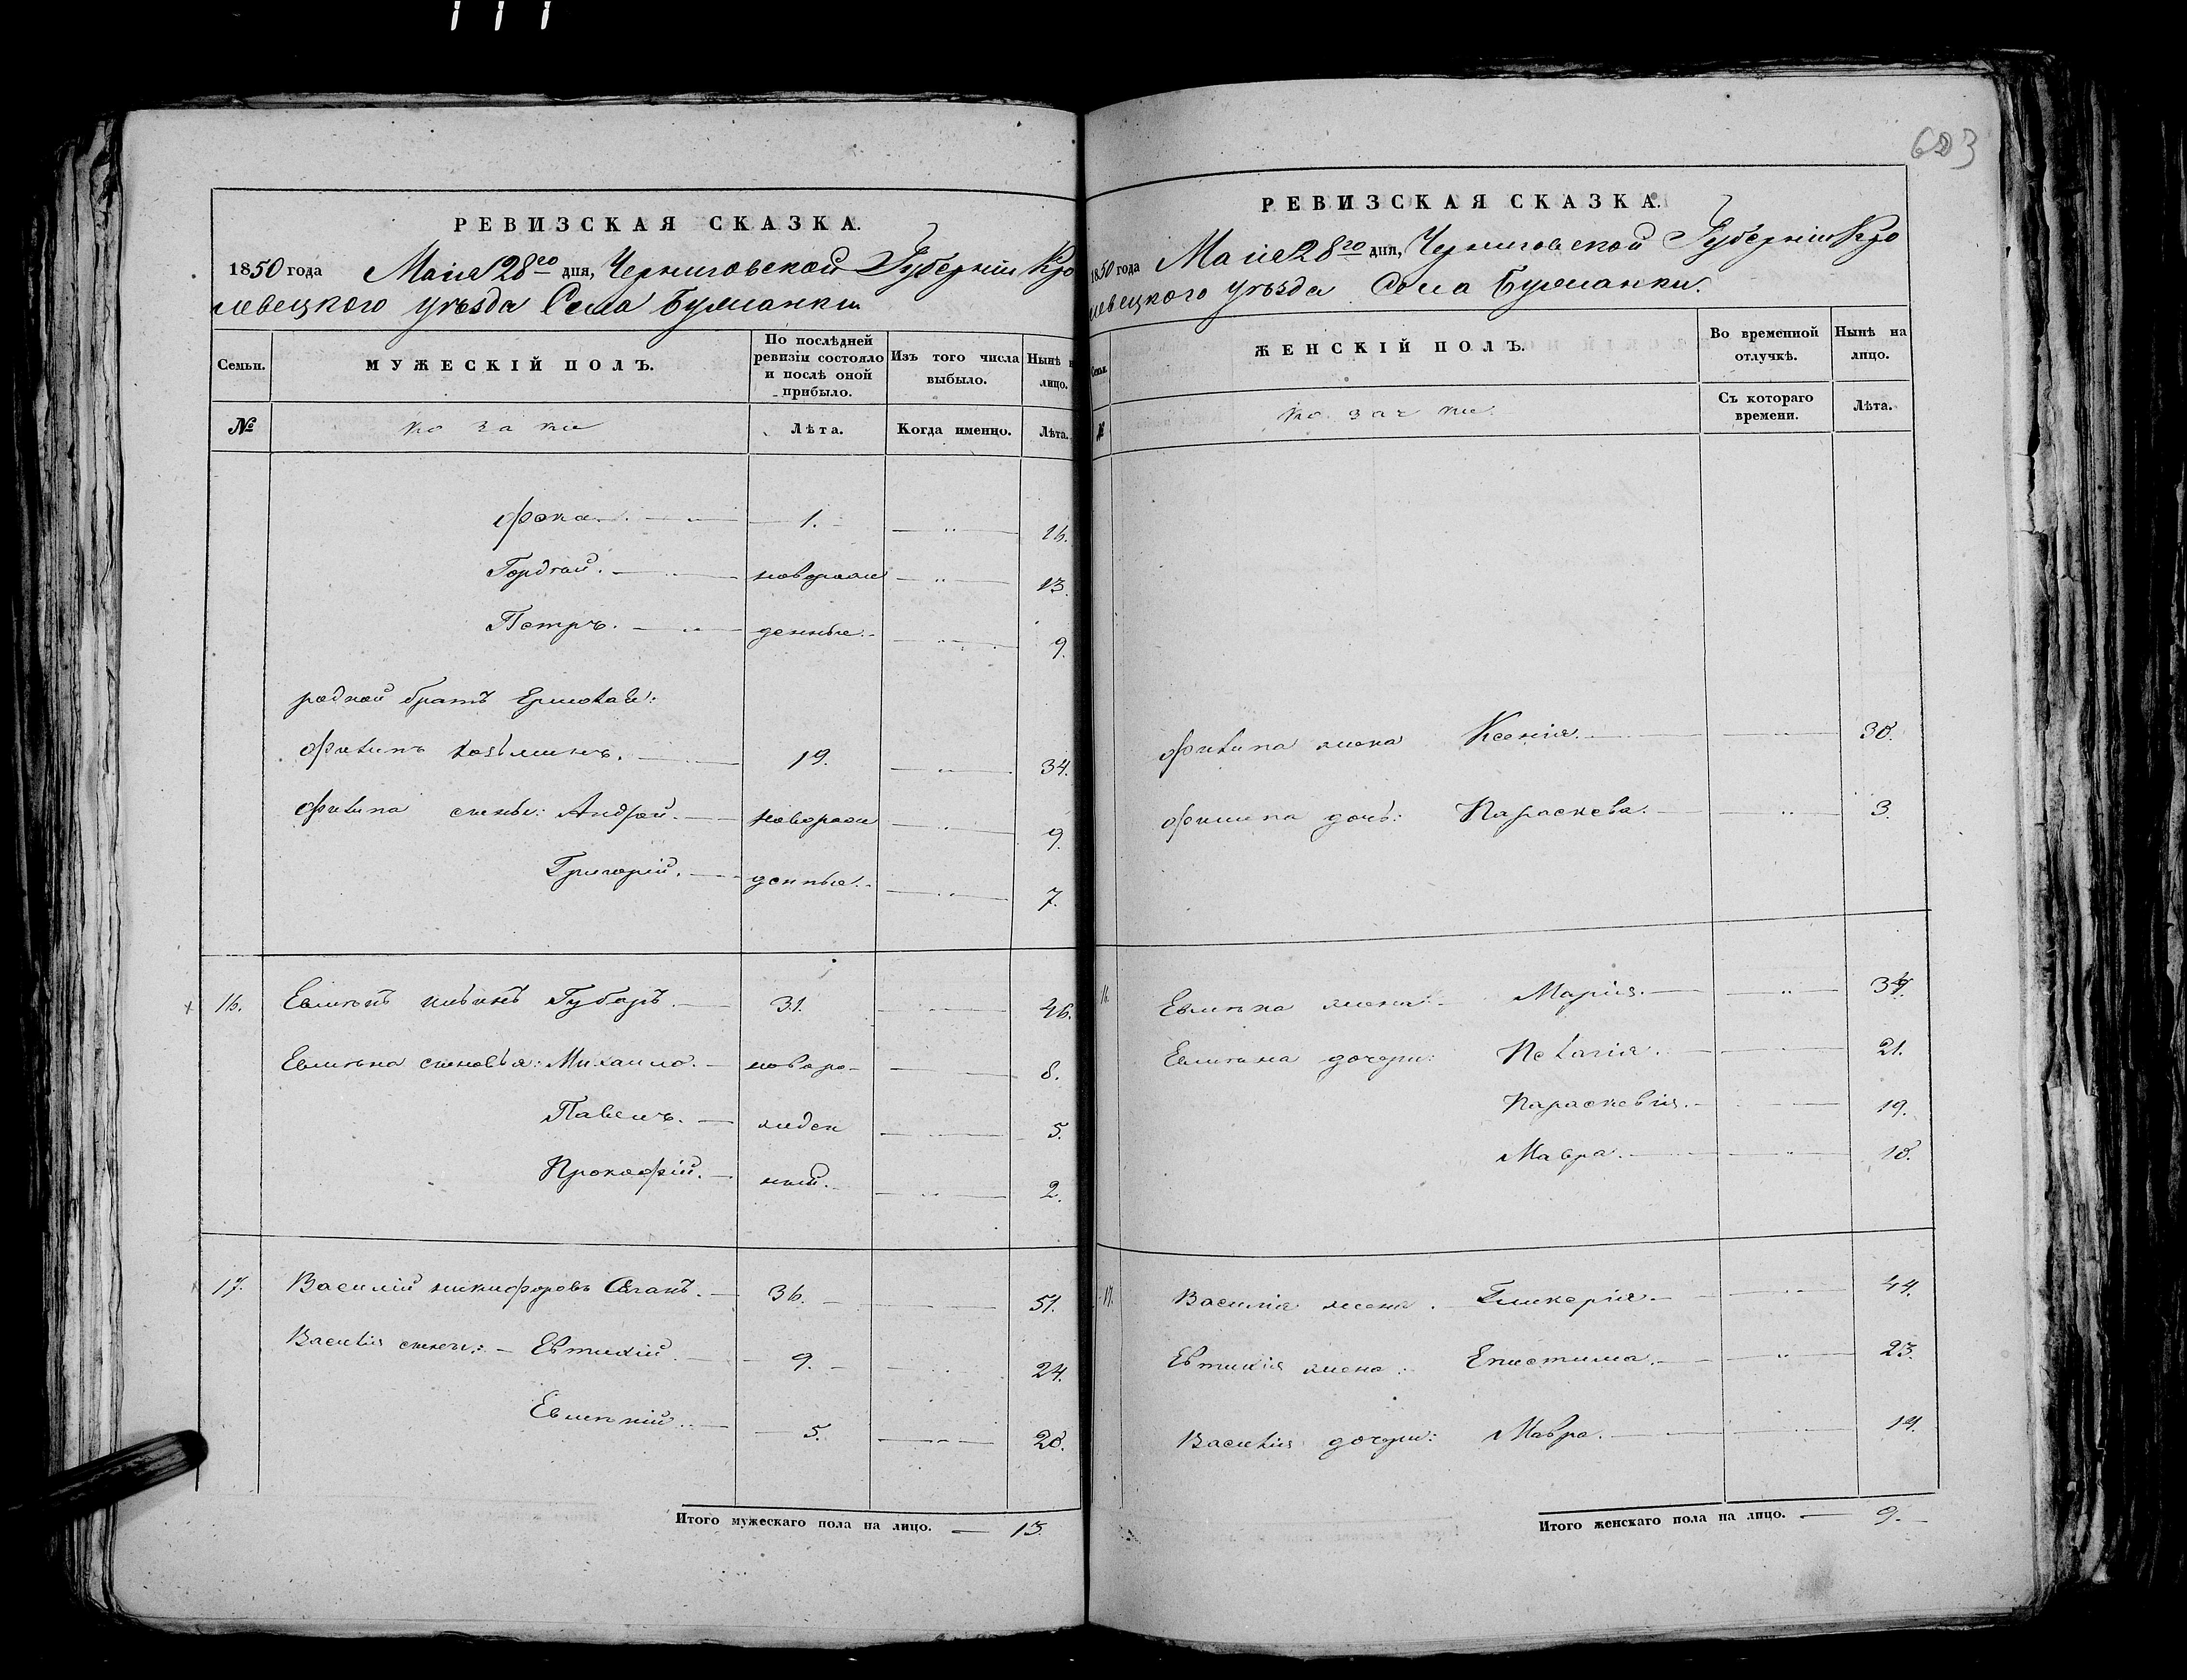 603
РЕВИЗСКАЯ СКАЗКА.
1850 года Маія 28го дня, Черниговской Губерніи Кро
левецкого уѣзда Села Бужанки
Семьи.
МУЖЕСКІЙ ПОЛЪ.
По послѣдней ревизіи состояло и послѣ оной прибыло.
Изъ того числа выбыло.
Нынѣ н лицо.
№
козаки
Лѣта.
Когда именно.
Лѣта.
Фока. 1. 16.
Гордѣй. новорож 13.
Петръ. денные. 9.
родной братъ Ермолай:
Филипъ Козьминъ. 19. 34.
Филипа сыны: Андрей. новорож 9.
Григорій. денные. 7.
16. Губарь. 31. 46.
сыновья: Михаило. новоро 8.
Павелъ. жден 5.
Прокофій. ный. 2.
17. Василій никифоровъ 36. 51.
Василія сыны: Евтихій 9. 24.
5. 20.
Итого мужескаго пола на лицо. 13.
РЕВИЗСКАЯ СКАЗКА.
1850 года Маія 28го дня, Черниговской Губерніи Кро
левецкого уѣзда Села Бужанки.
Семьи.
ЖЕНСКІЙ ПОЛЪ.
Во временной отлучкѣ.
Нынѣ на лицо.
№
козачки
Съ котораго времени.
Лѣта.
Филипа жена Ксенія. 30.
Филипа дочь: Параскева. 3.
16. жена: Марія. 39.
дочери: Пелагія. 21.
Параскевія. 19.
Мавра. 10.
17. Василія жена. Гликерія. 44.
Евтихія жена: Епистима. 23.
Василія дочери: Мавра. 14.
Итого женскаго пола на лицо. 9.